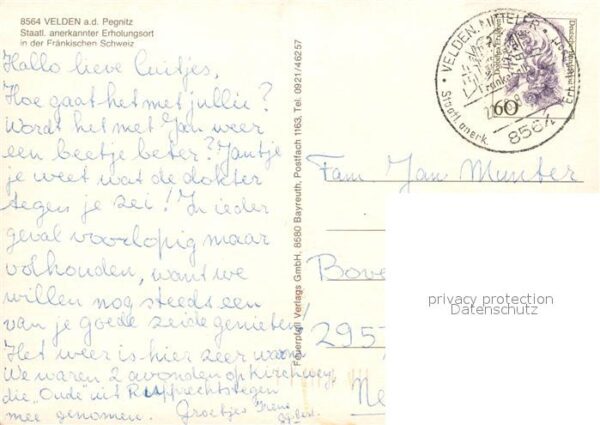 8564 VELDEN a.d. Pegnitz
Staatl. anerkannter Erholungsort
in der Fränkischen Schweiz
Hallo lieve Luitjes,
Hoe gaat het met jullie?
Wordt het met Jan weer
een beetje beter? Jantje
je weet wat de dokter
tegen je zei! In ieder
geval voorlopig maar
volhouden, want we
willen nog steeds een
van je goede zeide genieten!
Het weer is hier zeer warm
We waren 2 avonden op Kirchweg
die "Oude" uit Rupprechtstegen
mee genomen. Groetjes Irene
Feuerpfeil Verlags GmbH, 8580 Bayreuth, Postfach 1163, Tel. 0921/46257
VELDEN, MITTELFR.
8564
Staatl. anerk.
60
Deutsche Bundespost
Fam Jan Munter
Bove
2957
Ne
privacy protection
Datenschutz